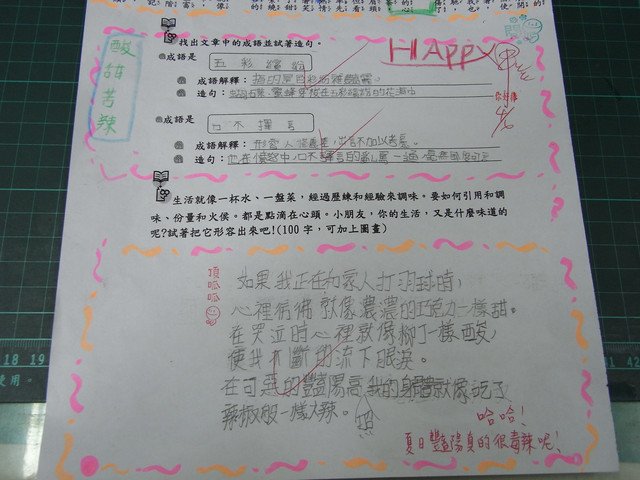 找出文章中的成語並試著造句。
HAPPY
酸甜苦辣
成語是 五彩繽紛
成語解釋:指的是色彩
造句:蝴蝶、蜜蜂穿梭在五彩繽紛的花海中
成語是 口不擇言
成語解釋:形容人
造句:他在憤怒中口不擇言的亂罵一通
生活就像一杯水、一盤菜,經過歷練和經驗來調味。要如何引用和調
味、份量和火侯。都是點滴在心頭。小朋友,你的生活,又是什麼味道的
呢?試著把它形容出來吧!(100字,可加上圖畫)
頂呱呱
如果我正在和家人打羽球時,
心裡彷彿就像濃濃的巧克力一樣甜。
在哭泣的心裡就像柳丁一樣酸,
使我不斷的流下眼淚。
在可惡的豔陽高照我的身體就像吃了
辣椒般一樣大辣。
哈哈!
夏日豔陽真的很毒辣呢!
18 19
使用。
41 42